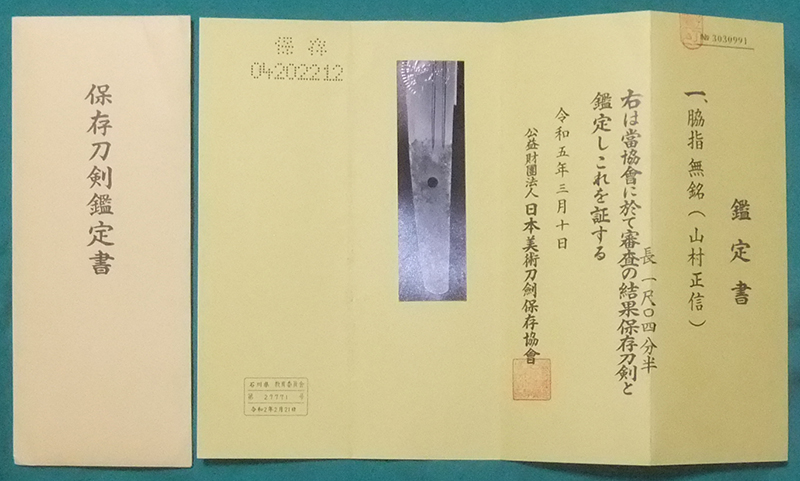 保存刀剣鑑定書
№ 3030991
鑑定書
一、脇指 無銘(山村正信)
長 一尺〇四分半
右は當協會に於て審査の結果保存刀剣と
鑑定しこれを証する
令和五年三月十日
公益財團法人 日本美術刀劍保存協會
保存
04202212
石川県 教育委員会
第 27771 号
令和2年2月21日